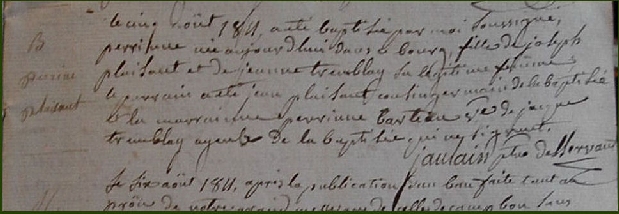 B
perrine
plaisant
le cinq août 1811, a été baptisée par moi soussigné,
perrinne née aujourd'hui dans ce bourg, fille de joseph
plaisant et de jeanne tremblay sa légitime femme
le parrain a été jean plaisant, cousin germain de la baptisée
& la marrainne perrinne basteau Ve de jacque
tremblay ayeule de la baptisée, qui ne signent.
jaulain ptre desservant
le six août 1811, après la publication d'un ban faite tant au
prône de notre grand messe que de celle de campbon sans